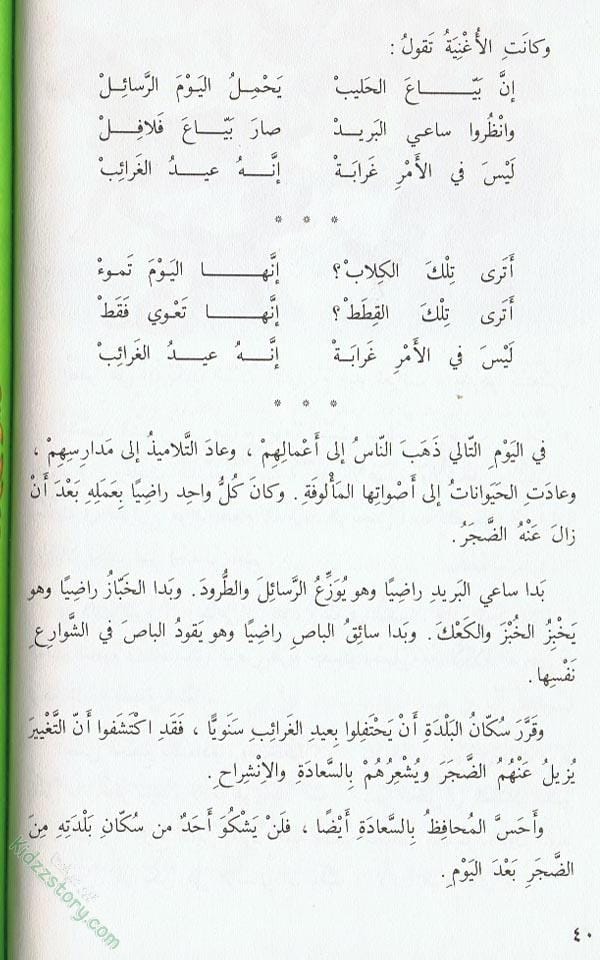 وكانَتِ الأُغْنِيَةُ تَقولُ :
إنَّ بَيّـــاعَ الحَليبْ يَحْمِـلُ اليَوْمَ الرَّسائِـلْ
وانْظُروا ساعي البَريـدْ صارَ بَيّـاعَ فَلافِـلْ
لَيْسَ في الأَمْرِ غَرابَـةْ إنَّـــهُ عيـدُ الغَرائِبْ
* * *
أَتَرى تِلْكَ الكِلابْ؟ إنَّهـــا اليَوْمَ تَموءْ
أَتَرى تِلْكَ القِطَطْ؟ إنَّهـــا تَعْوي فَقَطْ
لَيْسَ في الأَمْرِ غَرابَـةْ إنَّـــهُ عيـدُ الغَرائِبْ
* * *
في اليَوْمِ التّالي ذَهَبَ النّاسُ إلى أَعْمالِهِمْ ، وعادَ التَّلاميذُ إلى مَدارِسِهِمْ ،
وعادَتِ الحَيَواناتُ إلى أَصْواتِها المَأْلوفَةِ. وكانَ كُلُّ واحِدٍ راضِيًا بِعَمَلِهِ بَعْدَ أَنْ
زالَ عَنْهُ الضَّجَرُ.
بَدا ساعي البَريدِ راضِيًا وهو يُوَزِّعُ الرَّسائِلَ والطُّرودَ. وبَدا الخَبّازُ راضِيًا وهو
يَخْبِزُ الخُبْزَ والكَعْكَ. وبَدا سائِقُ الباصِ راضِيًا وهو يَقودُ الباصَ في الشَّوارِعِ
نَفْسِها.
وقَرَّرَ سُكّانُ البَلْدَةِ أَنْ يَحْتَفِلوا بِعيدِ الغَرائِبِ سَنَوِيًّا ، فَقَدِ اكْتَشَفوا أَنَّ التَّغْييرَ
يُزيلُ عَنْهُمُ الضَّجَرَ ويُشْعِرُهُمْ بِالسَّعادَةِ والاِنْشِراحِ.
وأَحَسَّ المُحافِظُ بِالسَّعادَةِ أَيْضًا ، فَلَنْ يَشْكُوَ أَحَدٌ من سُكّانِ بَلْدَتِهِ مِنَ
الضَّجَرِ بَعْدَ اليَوْمِ.
٤٠
Kidzzstory.com